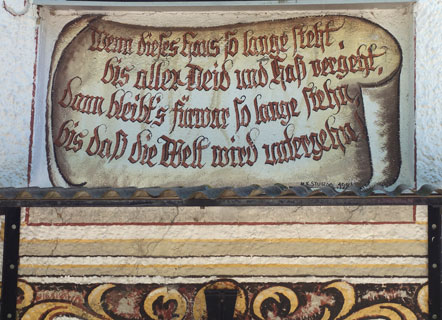 Wenn dieses Haus so lange steht,
bis aller Neid und Haß vergeht,
dann bleibt's fürwar so lange stehn,
bis daß die Welt wird untergehn